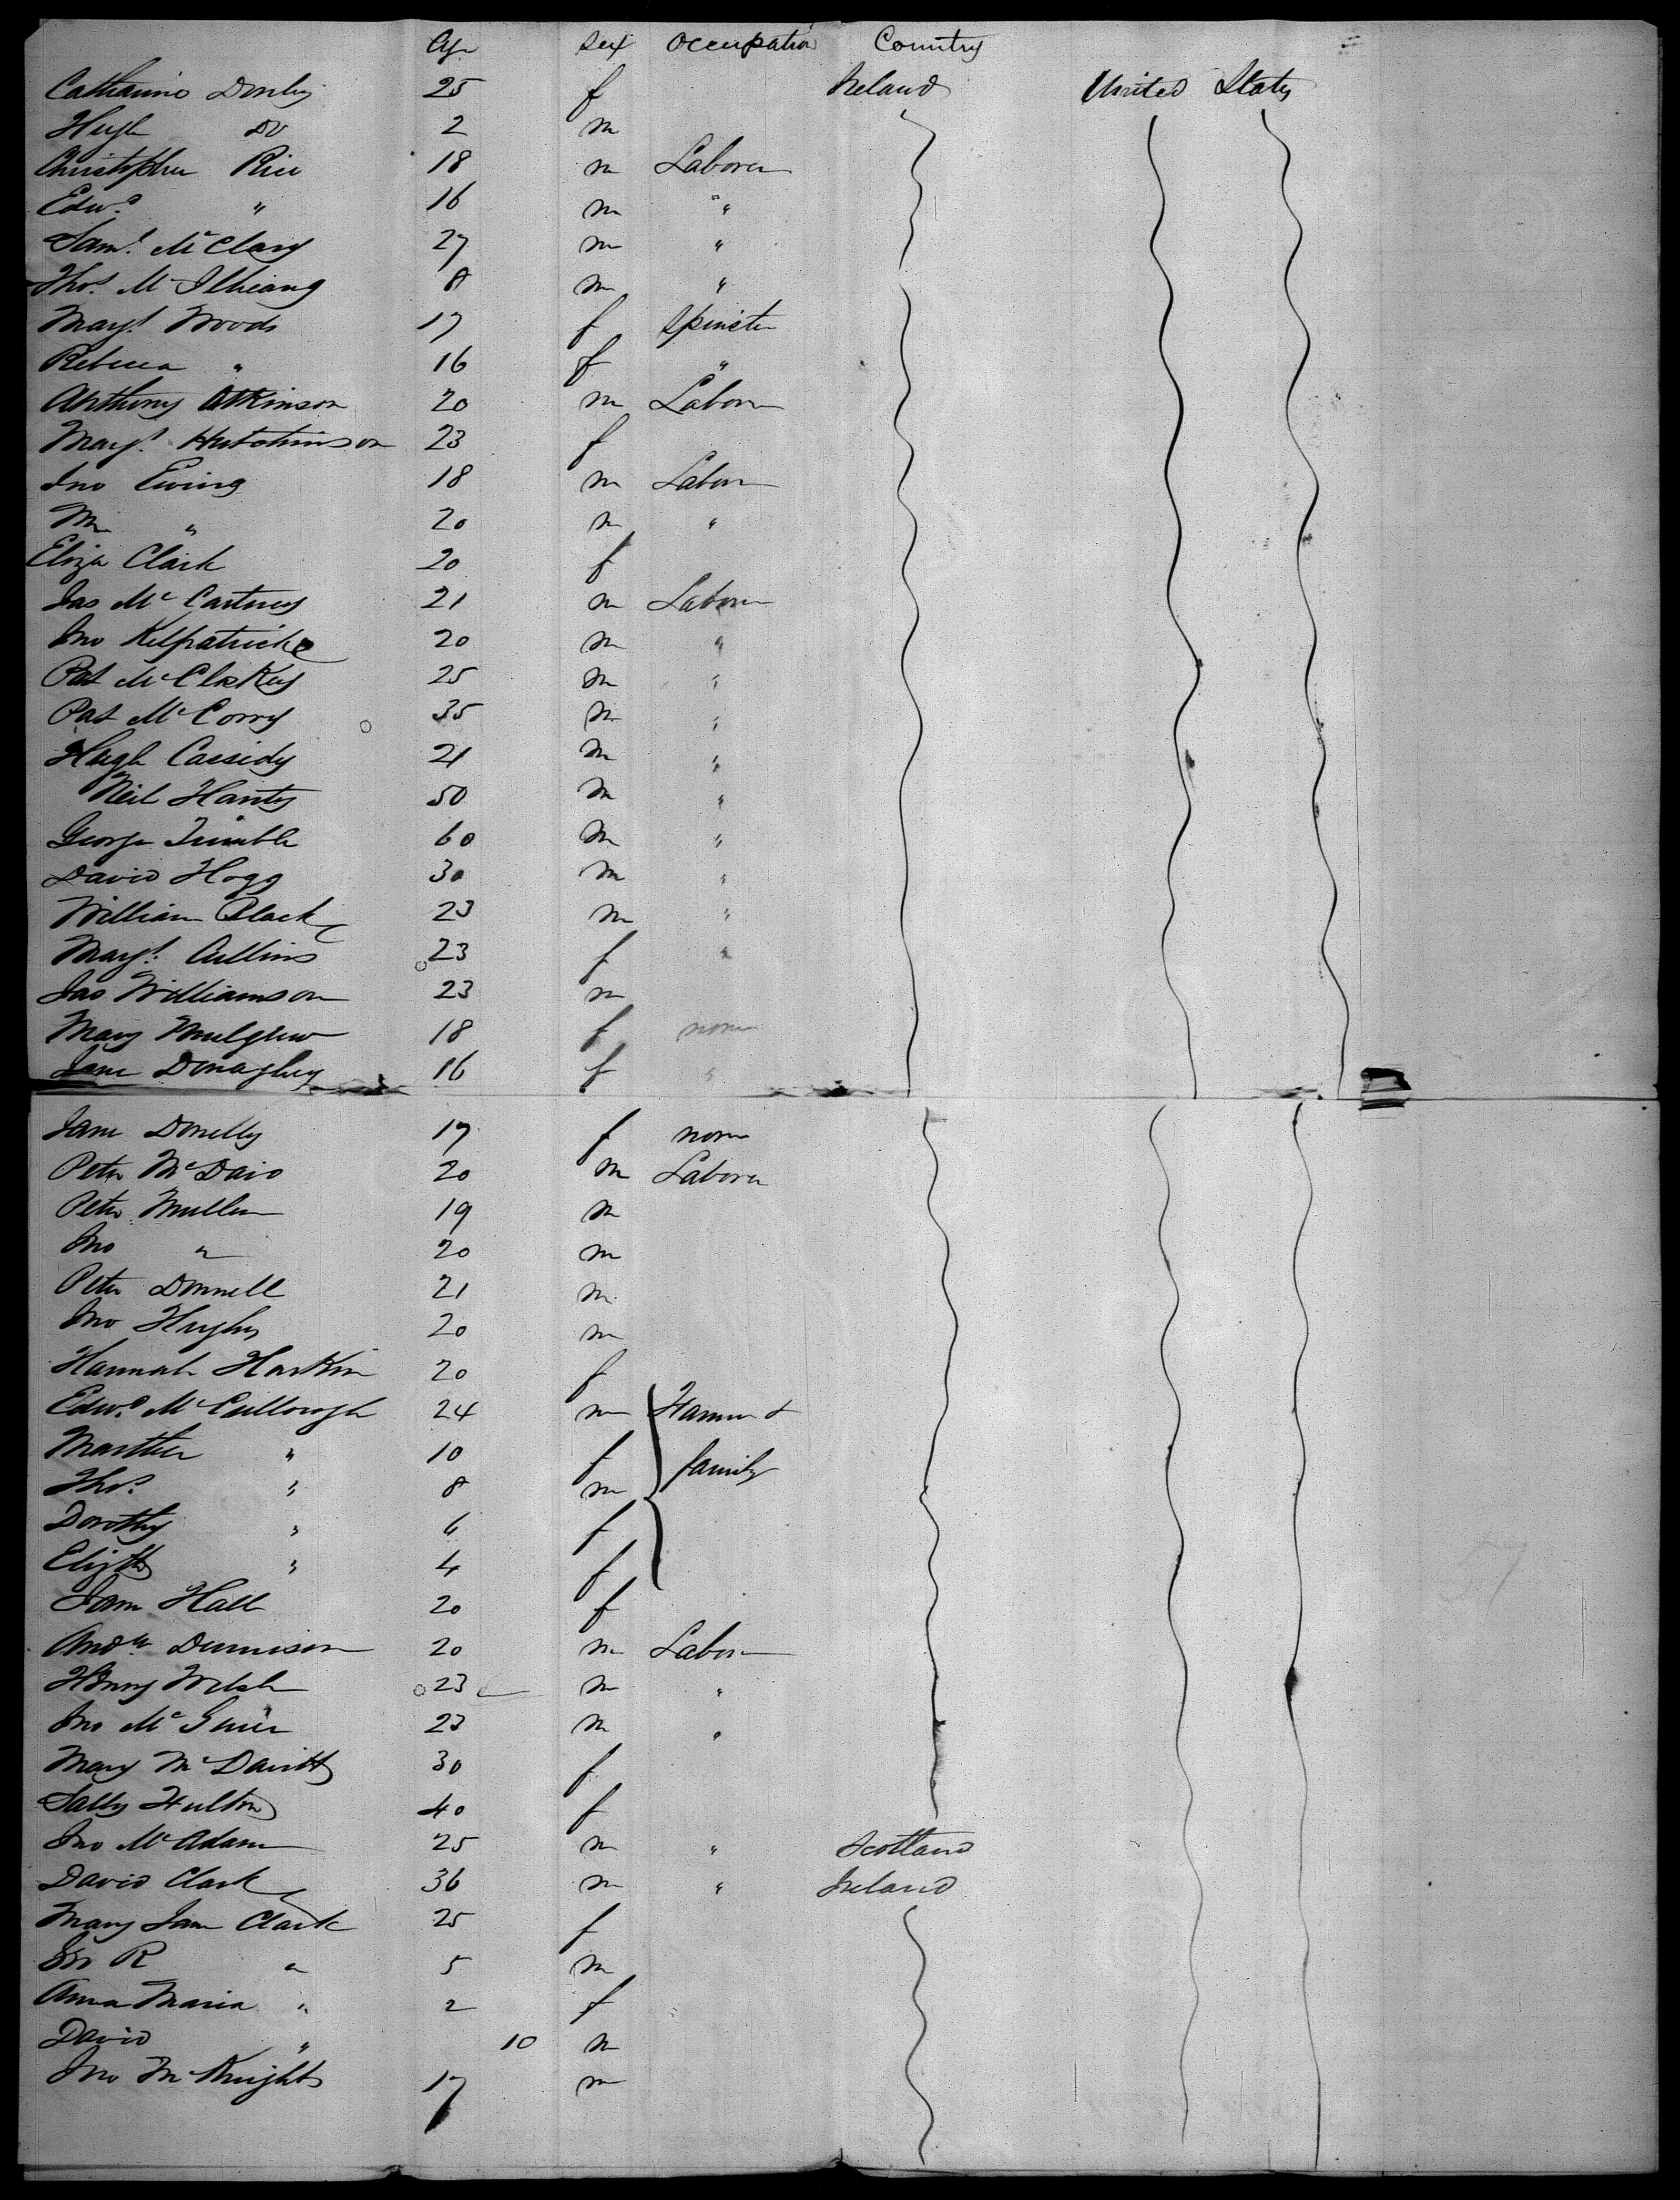 Age Sex Occupation Country
Catharine Donly 25 f Ireland United States
Hugh Do 2 m
Christopher Rice 18 m Laborer
Edwd " 16 m " "
Saml McClary 27 m "
Thos M 8 m "
Margt Woods 17 f Spinster
Rebecca " 16 f "
Anthony Atkinson 20 m Laborer
Margt Hutchinson 23 f
Jno Ewing 18 m Labor
Wm " 20 m "
Eliza Clark 20 f
Jas McCartney 21 m Laborer
Jno Kilpatrick 20 m "
Pat McCloskey 25 m "
Pat McCorry 35 m "
Hugh Cassidy 21 m "
Neil Hanty 50 m "
George Trimble 60 m "
David Hogg 30 m "
William Black 23 m "
Margt Cullins 23 f "
Jas Williamson 23 m
Mary Mulgrew 18 f none
Jane Donaghey 16 f "
Jane Donelly 17 f none
Peter McDaid 20 m Laborer
Peter Mullen 19 m
Jno " 20 m
Peter Donnell 21 m
Jno Hughes 20 m
Hannah Harkin 20 f
Edwd McCullough 24 m Farmer &
Marther " 10 f family
Thos " 8 m
Dorothy " 6 f
Elizth " 4 f
Jane Hall 20 f
Andw Dennison 20 m Labor
Henry Welsh 23 m "
Jno McGuier 23 m "
Mary McDavitt 30 f
Sally Hulton 40 f
Jno McAdam 25 m " Scotland
David Clark 36 m " Ireland
Mary Jane Clark 25 f
Jno R " 5 m
Anna Maria " 2 f
David " 10 m
Jno McKnight 17 m
57